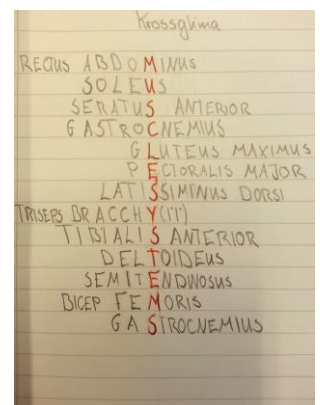 Krossglíma
RECTUS ABDOMINUS
SOLEUS
SERATUS ANTERIOR
GASTROCNEMIUS
GLUTEUS MAXIMUS
PECTORALIS MAJOR
LATISSIMINUS DORSI
TRISEPS BRACCHY(I?I?)
TIBIALIS ANTERIOR
DELTOIDEUS
SEMITENDINOSUS
BICEP FEMORIS
GASTROCNEMIUS